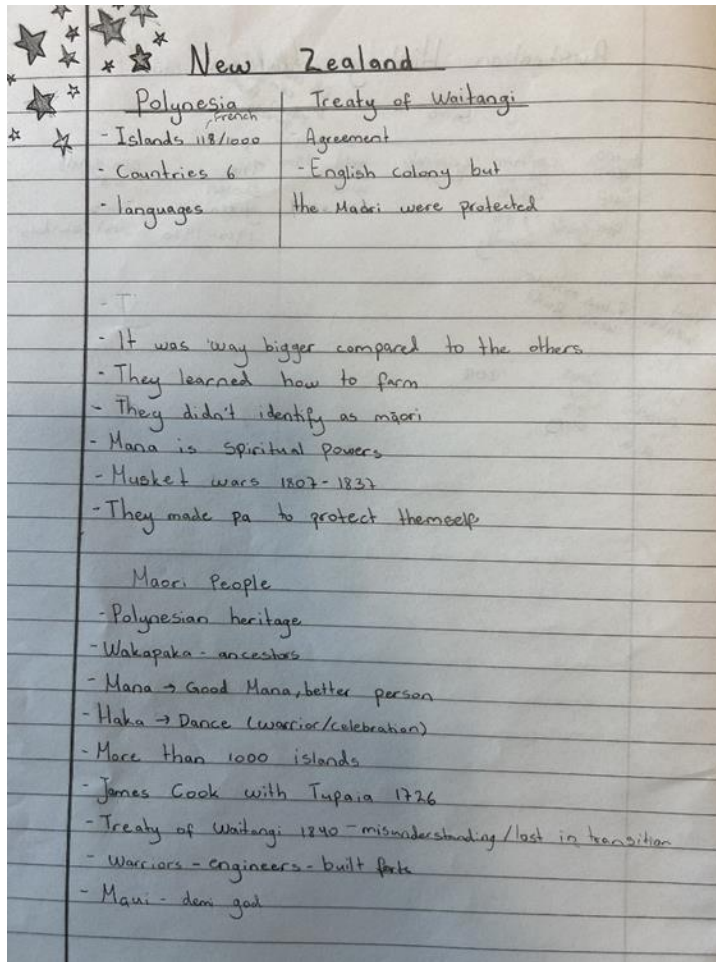 New Zealand
Polynesia
Treaty of Waitangi
French
- Islands 118/1000
Agreement
- Countries 6
- English colony but
- languages
the Maori were protected
- T
- It was way bigger compared to the others
- They learned how to farm
- They didn't identify as māori
- Mana is spiritual powers
- Musket wars 1807-1837
- They made pa to protect themself
Maori People
- Polynesian heritage
- Wakapaka - ancestors
- Mana → Good Mana, better person
- Haka → Dance (warrior/celebration)
- More than 1000 islands
- James Cook with Tupaia 1726
- Treaty of Waitangi 1840 - misunderstanding/lost in transition
- Warriors - engineers - built forts
- Maui - demi god